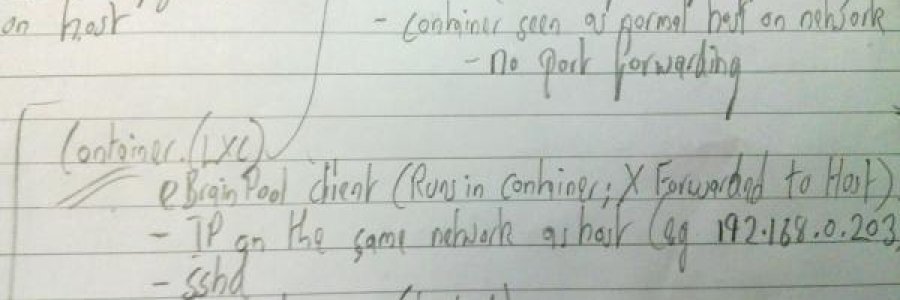 on host
- Container seen as normal host on network
- no port forwarding
Container (LXC)
eBrainPool client (Runs in container; X Forwarded to Host)
- IP on the same network as host (eg 192.168.0.203
- sshd